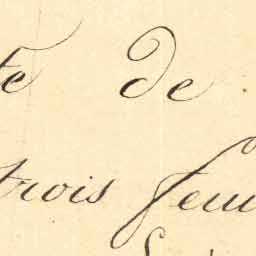 te de
trois feu